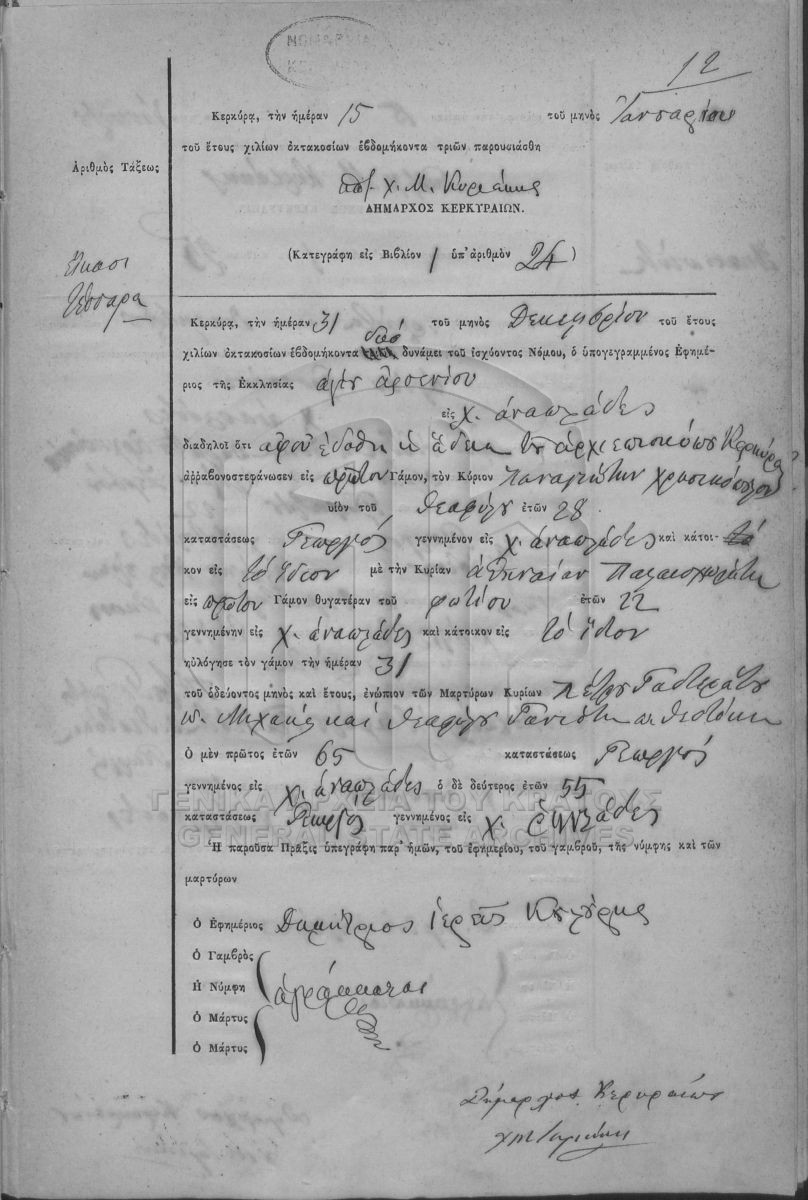 12
Κερκύρᾳ, τὴν ἡμέραν 15 τοῦ μηνὸς Ἰανουαρίου
τοῦ ἔτους χιλίων ὀκτακοσίων ἑβδομήκοντα τριῶν παρουσιάσθη
Ἀριθμὸς Τάξεως
χ. Μ. Κυριάκης
ΔΗΜΑΡΧΟΣ ΚΕΡΚΥΡΑΙΩΝ.
(Κατεγράφη εἰς Βιβλίον 1 ὑπ' ἀριθμὸν 24)
εἴκοσι
τέσσαρα
Κερκύρᾳ, τὴν ἡμέραν 31 τοῦ μηνὸς Δεκεμβρίου τοῦ ἔτους
χιλίων ὀκτακοσίων ἑβδομήκοντα δύο δυνάμει τοῦ ἰσχύοντος Νόμου, ὁ ὑπογεγραμμένος Ἐφημέ-
ριος τῆς Ἐκκλησίας ἁγίου ἀρσενίου
εἰς χ. ἀναπλάδες
διαδηλοῖ ὅτι ἀφοῦ ἐδόθη ἡ ἄδεια τοῦ ἀρχιεπισκόπου Κερκύρας
ἀῤῥαβονοστεφάνωσεν εἰς πρῶτον Γάμον, τὸν Κύριον Παναγιώτην χρυσικόπουλον
υἱὸν τοῦ θεοφίλου ἐτῶν 28
καταστάσεως Γεωργός γεννημένον εἰς χ. ἀναπλάδες καὶ κάτοι-
κον εἰς τό ἴδιον μὲ τὴν Κυρίαν ἀθηναίαν
εἰς πρῶτον Γάμον θυγατέραν τοῦ φωτίου ἐτῶν 22
γεννημένην εἰς χ. ἀναπλάδες καὶ κάτοικον εἰς τό ἴδιον
ηὐλόγησε τὸν γάμον τὴν ἡμέραν 31
τοῦ ὁδεύοντος μηνὸς καὶ ἔτους, ἐνώπιον τῶν Μαρτύρων Κυρίων πέτρου Γαστεράτου
π. Μιχαήλ καί θεοφίλου
Ὁ μὲν πρῶτος ἐτῶν 65 καταστάσεως Γεωργός
γεννημένος εἰς χ. ἀναπλάδες ὁ δὲ δεύτερος ἐτῶν 55
ΓΕΝΙΚΑ ΑΡΧΕΙΑ ΤΟΥ ΚΡΑΤΟΥΣ
καταστάσεως Γεωργός γεννημένος εἰς χ.
GENERAL STATE ARCHIVES
Ἡ παροῦσα Πρᾶξις ὑπεγράφη παρ' ἡμῶν, τοῦ ἐφημερίου, τοῦ γαμβροῦ, τῆς νύμφης καὶ τῶν
μαρτύρων
Ὁ Ἐφημέριος Δημήτριος ἱερεύς
Ὁ Γαμβρὸς
Ἡ Νύμφη ἀγράμματοι
Ὁ Μάρτυς
Ὁ Μάρτυς
Δήμαρχος Κερκυραίων